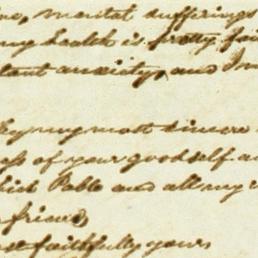 mental sufferings
my health is pretty fai
tant anxiety, and I m
my most sincere
ess of your good self a
hich Pablo and all my
friend,
faithfully yours